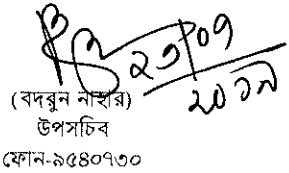 ২৩/০৭
২০১৭
(বদরুন নাহার)
উপসচিব
ফোন-৯৫৪০৭৩০